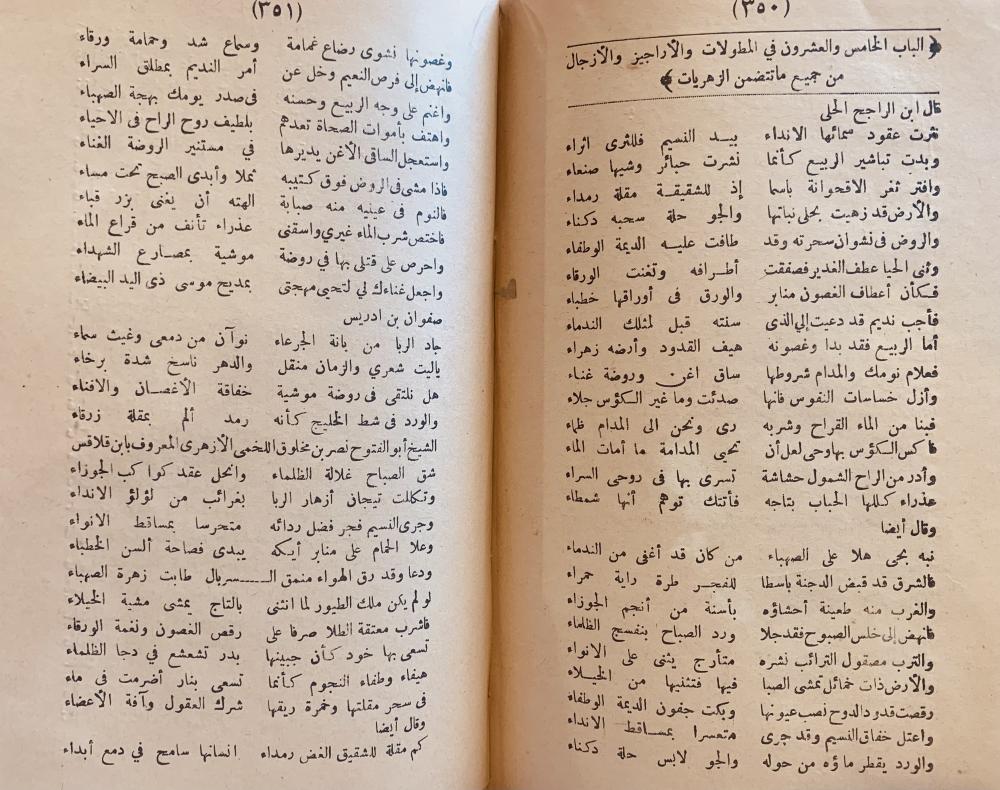 (٣٥٠)
﴿ الباب الخامس والعشرون في المطولات والأراجيز والأزجال
من جميع ماتتضمن الزهريات ﴾
قال ابن الراجح الحلى
نثرت عقود سمائها الانداء بيد النسيم فللثرى اثراء
وبدت تباشير الربيع كأنما نشرت حبائر وشيها صنعاء
وافتر ثغر الاقحوانة باسما إذ للشقيقة مقلة رمداء
والأرض قد زهيت بحلى نباتها والجو حلة سحبه دكناء
والروض فى نشوان سحرته وقد طافت عليه الديمة الوطفاء
وثنى الحيا عطف الغدير فصفقت أطرافه وتغنت الورقاء
فكأن أعطاف الغصون منابر والورق فى أوراقها خطباء
فأجب نديم قد دعيت إلى الذى سنته قبل لمثلك الندماء
أما الربيع فقد بدا وغصونه هيف القدود وأرضه زهراء
فعلام نومك والمدام شروطها ساق اغن وروضة غناء
وأزل خساسات النفوس فانها صدئت وما غير الكؤس جلاء
فبنا من الماء القراح وشربه رى ونحن الى المدام ظماء
فا كس الكؤس بها وحى لعل أن تحيى المدامة ما أمات الماء
وأدر من الراح الشمول حشاشة تسرى بها فى روحى السراء
عذراء كللها الحباب بتاجه فأتتك توهم أنها شمطاء
وقال أيضا
نبه بحى هلا على الصهباء من كان قد أغفى من الندماء
فالشرق قد قبض الدجنة باسطا للفجر طرة راية حمراء
والغرب منه طعينة أحشاؤه بأسنة من أنجم الجوزاء
فانهض إلى خلس الصبوح فقد جلا ورد الصباح بنفسج الظلماء
والترب مصقول الترائب نشره متأرج يثنى على الانواء
والأرض ذات خمائل تمشى الصبا فيها فتثنيها من الخيلاء
رقصت قدود الدوح نصب عيونها وبكت جفون الديمة الوطفاء
واعتل خفاق النسيم وقد جرى متعسرا بمساقط الانداء
والورد يقطر ماؤه من حوله والجو لابس حلة دكناء
(٣٥١)
وغصونها نشوى رضاع غمامة وسماع شد وحمامة ورقاء
فانهض إلى فرص النعيم وخل عن أمر النديم بمطلق السراء
واغنم على وجه الربيع وحسنه فى صدر يومك بهجة الصهباء
واهتف بأموات الصحاة تعدهم بلطيف روح الراح فى الاحياء
واستعجل الساقى الأغن يديرها في مستنير الروضة الغناء
فاذا مشى فى الروض فوق كثيبه ثملا وأبدى الصبح تحت مساء
فالنوم فى عينيه منه صبابة الهته أن يغنى بزر قباء
فاختص شرب الماء غيري واسقنى عذراء تأنف من قراع الماء
واحرص على قتلى بها في روضة موشية بمصارع الشهداء
واجعل غناءك لي لتحيى مهجتى بمديح موسى ذى اليد البيضاء
صفوان بن ادريس
جاد الربا من بانة الجرعاء نوآن من دمعى وغيث سماء
ياليت شعري والزمان منقل والدهر ناسخ شدة برخاء
هل نلتقى فى روضة موشية خفاقة الأغصان والافناء
والورد فى شط الخليج كأنه رمد ألم بمقلة زرقاء
الشيخ أبو الفتوح نصر بن مخلوق اللخمى الأزهرى المعروف بابن قلاقس
شق الصباح غلالة الظلماء وانحل عقد كوا كب الجوزاء
وتكللت تيجان أزهار الربا بغرائب من لؤلؤ الانداء
وجرى النسيم فجر فضل ردائه متحرسا بمساقط الانواء
وعلا الحمام على منابر أيكه يبدى فصاحة ألسن الخطباء
ودعا وقد رق الهواء منمق الـسربال طابت زهرة الصهباء
لو لم يكن ملك الطيور لما انثنى بالتاج يمشى مشية الخيلاء
فاشرب معتقة الطلا صرفا على رقص الغصون ونغمة الورقاء
تسعى بها خود كأن جبينها بدر تشعشع في دجا الظلماء
هيفاء وطفاء النجوم كأنما تسعى بنار أضرمت فى ماء
فى سحر مقلتها وخمرة ريقها شرك العقول وآفة الأعضاء
وقال أيضا
كم مقلة للشقيق الغض رمداء انسانها سامح في دمع أنداء